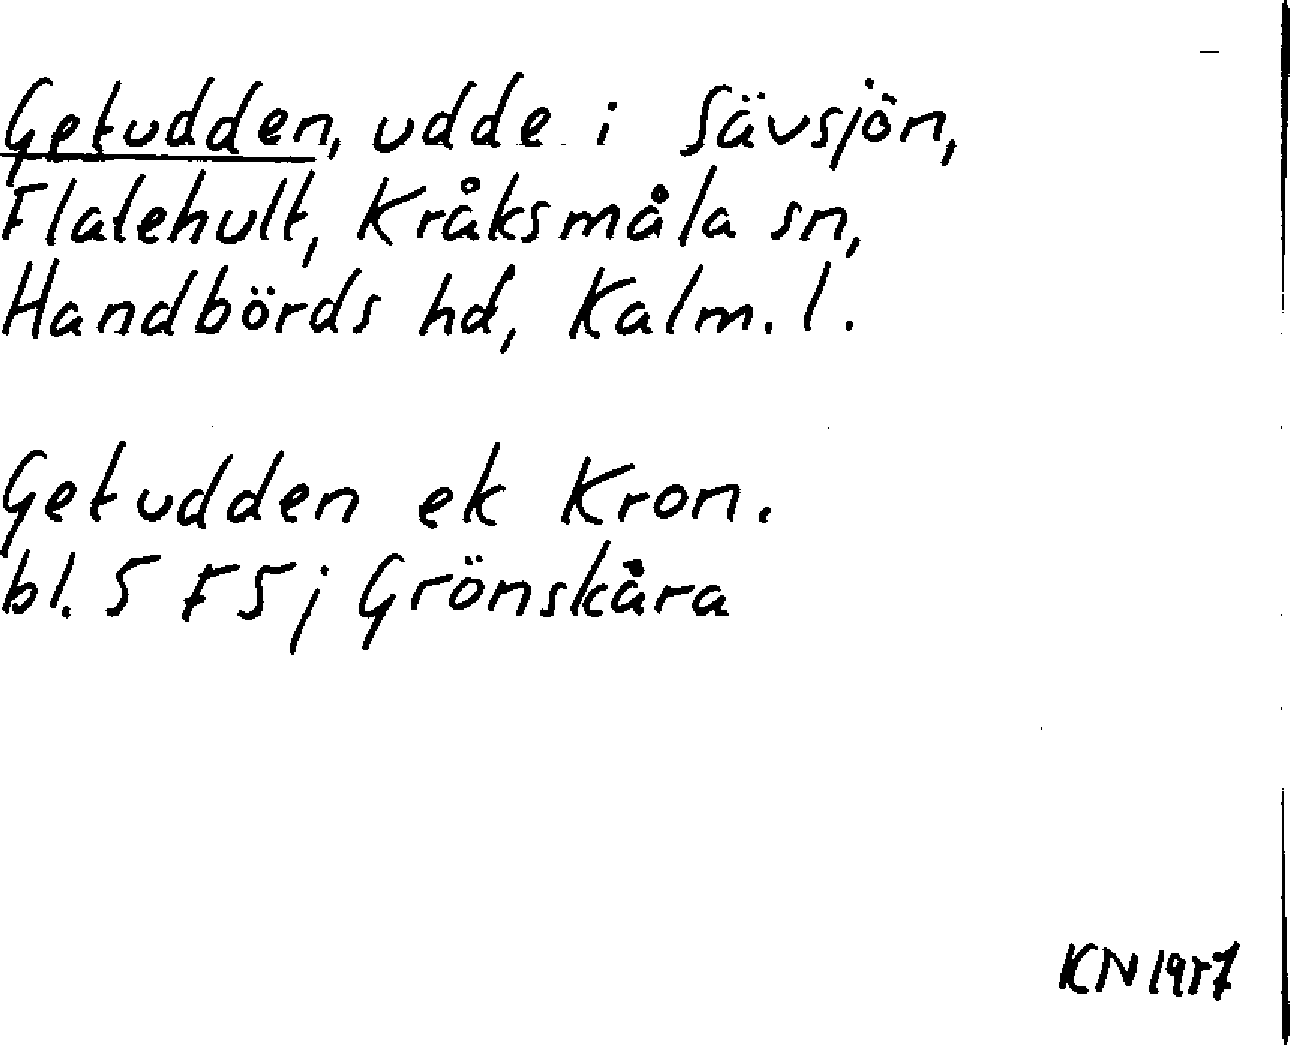 Getudden, udde i Sävsjön,
Flatehult, Kråksmåla sn,
Handbörds hd, Kalm. l.
Getudden ek Kron.
bl. 5 F 5 j Grönskåra
KN 1957